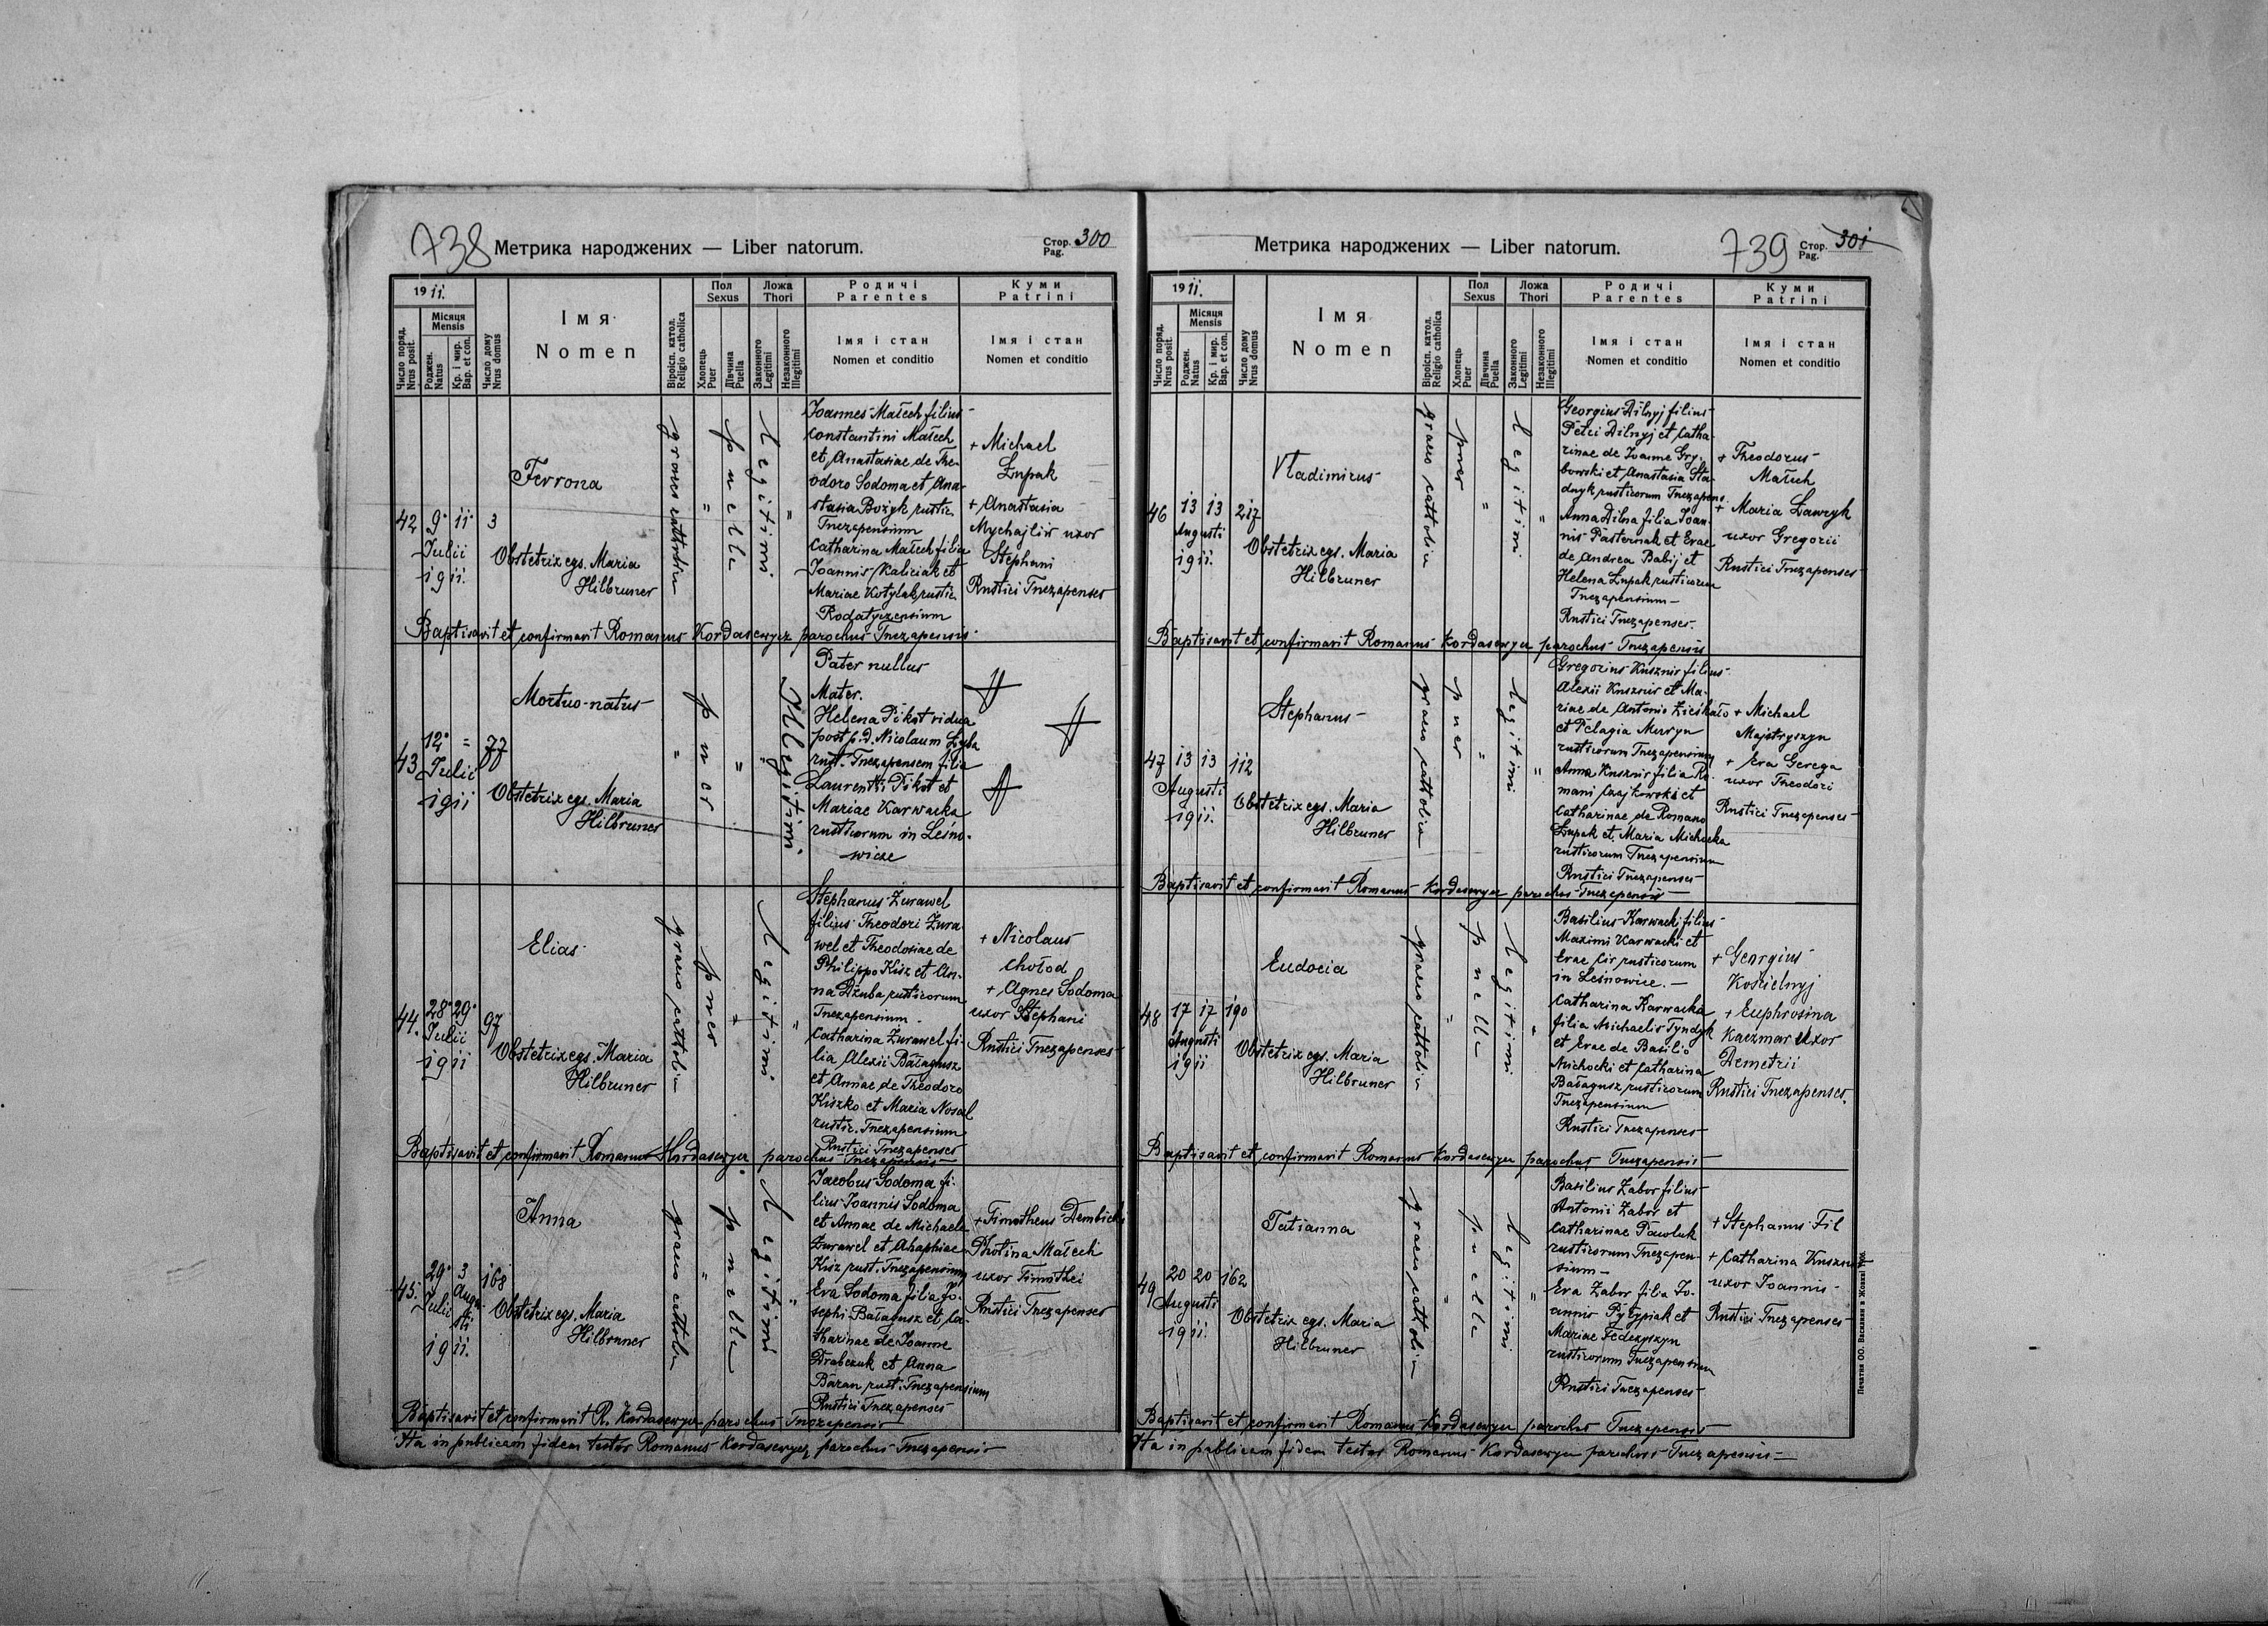 738 Метрика народжених — Liber natorum. Стор. Pag. 300
1911.
Число поряд. Nrus posit.
Місяця Mensis
Роджен. Natus
Кр. і мир. Bap. et con.
Число дому Nrus domus
Імя
Nomen
Віросп. катол. Religio catholica
Пол Sexus
Хлопець Puer
Дівчина Puella
Ложа Thori
Законного Legitimi
Незаконного Illegitimi
Родичі
Parentes
Імя і стан
Nomen et conditio
Куми
Patrini
Імя і стан
Nomen et conditio
42 9 11 3
Julii
1911.
Ferrona
Obstetrix egs. Maria
Hilbruner
puella
Legitimi
Joannes Małech filius
Constantini Małech
et Anastasiae de The-
odoro Sodoma et Ana-
stasia Bożyk rustic.
Tnczapensium
Catharina Małech filia
Joannis Kaliciak et
Mariae Kotylak rustic.
Rodatyczensium
+ Michael
Łupak
+ Anastasia
Mychajliw uxor
Stephani
Rustici Tnczapenses
Baptisavit et confirmavit Romanus Kordasewycz parochus Tnczapensis
43 12 = 77
Julii
1911
Mortuo-natus
Obstetrix egs. Maria
Hilbruner
puer
Illegitimi
Pater nullus
Mater.
Helena Pikot vidua
post p.d. Nicolaum
rust. Tnczapensem filia
Laurentii Pikot et
Mariae Karwacka
rusticorum in Leśno-
wicze
44. 28 29 97
Julii
1911
Elias
Obstetrix egs. Maria
Hilbruner
graeco catholica
puer
Legitimi
Stephanus Żurawel
filius Theodori Żura
wel et Theodosiae de
Philippo Kisz et An-
na Dziuba rusticorum
Tnczapensium.
Catharina Żurawel fi-
lia Alexii Bałagusz
et Annae de Theodoro
Kiszko et Maria Nosal
rustic. Tnczapensium
Rustici Tnczapenses
+ Nicolaus
Chołod
+ Agnes Sodoma
uxor Stephani
Rustici Tnczapenses
Baptisavit et confirmavit Romanus Kordasewycz parochus Tnczapensis
45. 29 3 168
Julii Augusti
1911.
Anna
Obstetrix egs. Maria
Hilbruner
graeco catholica
puella
Legitimi
Jacobus Sodoma fi-
lius Joannis Sodoma
et Annae de Michaele
Żurawel et Ahaphiae
Kisz rust. Tnczapensium
Eva Sodoma filia Jo-
sephi Bałagusz et Ca-
tharinae de Joanne
Drabczuk et Anna
Baran rust. Tnczapensium
Rustici Tnczapenses
+ Timotheus Dembicki
Photina Małech
uxor Timothei
Rustici Tnczapenses
Baptisavit et confirmavit R. Kordasewycz parochus Tnczapensis
Ita in publicam fidem testor Romanus Kordasewycz parochus Tnczapensis
Метрика народжених — Liber natorum. 739 Стор. Pag. 301
1911.
Число поряд. Nrus posit.
Місяця Mensis
Роджен. Natus
Кр. і мир. Bap. et con.
Число дому Nrus domus
Імя
Nomen
Віросп. катол. Religio catholica
Пол Sexus
Хлопець Puer
Дівчина Puella
Ложа Thori
Законного Legitimi
Незаконного Illegitimi
Родичі
Parentes
Імя і стан
Nomen et conditio
Куми
Patrini
Імя і стан
Nomen et conditio
46 13 13 217
Augusti
1911.
Vladimirus
Obstetrix egs. Maria
Hilbruner
graeco catholica
puer
legitimi
Georgius Dilnyj filius
Petri Dilnyj et Catha-
rinae de Joanne Gry-
bowski et Anastasia Sta-
dnyk rusticorum Tnczapens.
Anna Dilna filia Joan-
nis Pasternak et Evae
de Andrea Babij et
Helena Łupak rusticorum
Tnczapensium
Rustici Tnczapenses.
+ Theodorus
Małech
+ Maria Ławryk
uxor Gregorii
Rustici Tnczapenses
Baptisavit et confirmavit Romanus Kordasewycz parochus Tnczapensis
47 13 13 112
Augusti
1911.
Stephanus
Obstetrix egs. Maria
Hilbruner
graeco catholica
puer
legitimi
Gregorius Kusznir filius
Alexii Kusznir et Ma-
riae de Antonio
et Pelagia Mavryn
rusticorum Tnczapensium
Anna Kusznir filia Ro-
mani Czajkowski et
Catharinae de Romano
Łupak et Maria Michocka
rusticorum Tnczapensium
Rustici Tnczapenses
+ Michael
Majstryszyn
+ Eva Gerega
uxor Theodori
Rustici Tnczapenses
Baptisavit et confirmavit Romanus Kordasewycz parochus Tnczapensis
48 17 17 190
Augusti
1911
Eudocia
Obstetrix egs. Maria
Hilbruner
graeco catholica
puella
legitimi
Basilius Karwacki filius
Maximi Karwacki et
Evae Cir rusticorum
in Leśnowice.
Catharina Karwacka
filia Michaelis Tyndyk
et Evae de Basilio
Michocki et Catharina
Bałagusz rusticorum
Tnczapensium
Rustici Tnczapenses
+ Georgius
Kościelnyj
+ Euphrosina
Kaczmar uxor
Demetrii
Rustici Tnczapenses.
Baptisavit et confirmavit Romanus Kordasewycz parochus Tnczapensis
49 20 20 162
Augusti
1911.
Tatianna
Obstetrix egs. Maria
Hilbruner
graeco catholica
puella
legitimi
Basilius Zabor filius
Antonii Zabor et
Catharinae Pawluk
rusticorum Tnczapen-
sium
Eva Zabor filia Jo-
annis Pyłypiak et
Mariae Fedczyszyn
rusticorum Tnczapensium
Rustici Tnczapenses
+ Stephanus Fil
+ Catharina Kusznir
uxor Joannis
Rustici Tnczapenses
Baptisavit et confirmavit Romanus Kordasewycz parochus Tnczapensis
Ita in publicam fidem testor Romanus Kordasewycz parochus Tnczapensis
Печатня ОО. Василіян в Жовкві